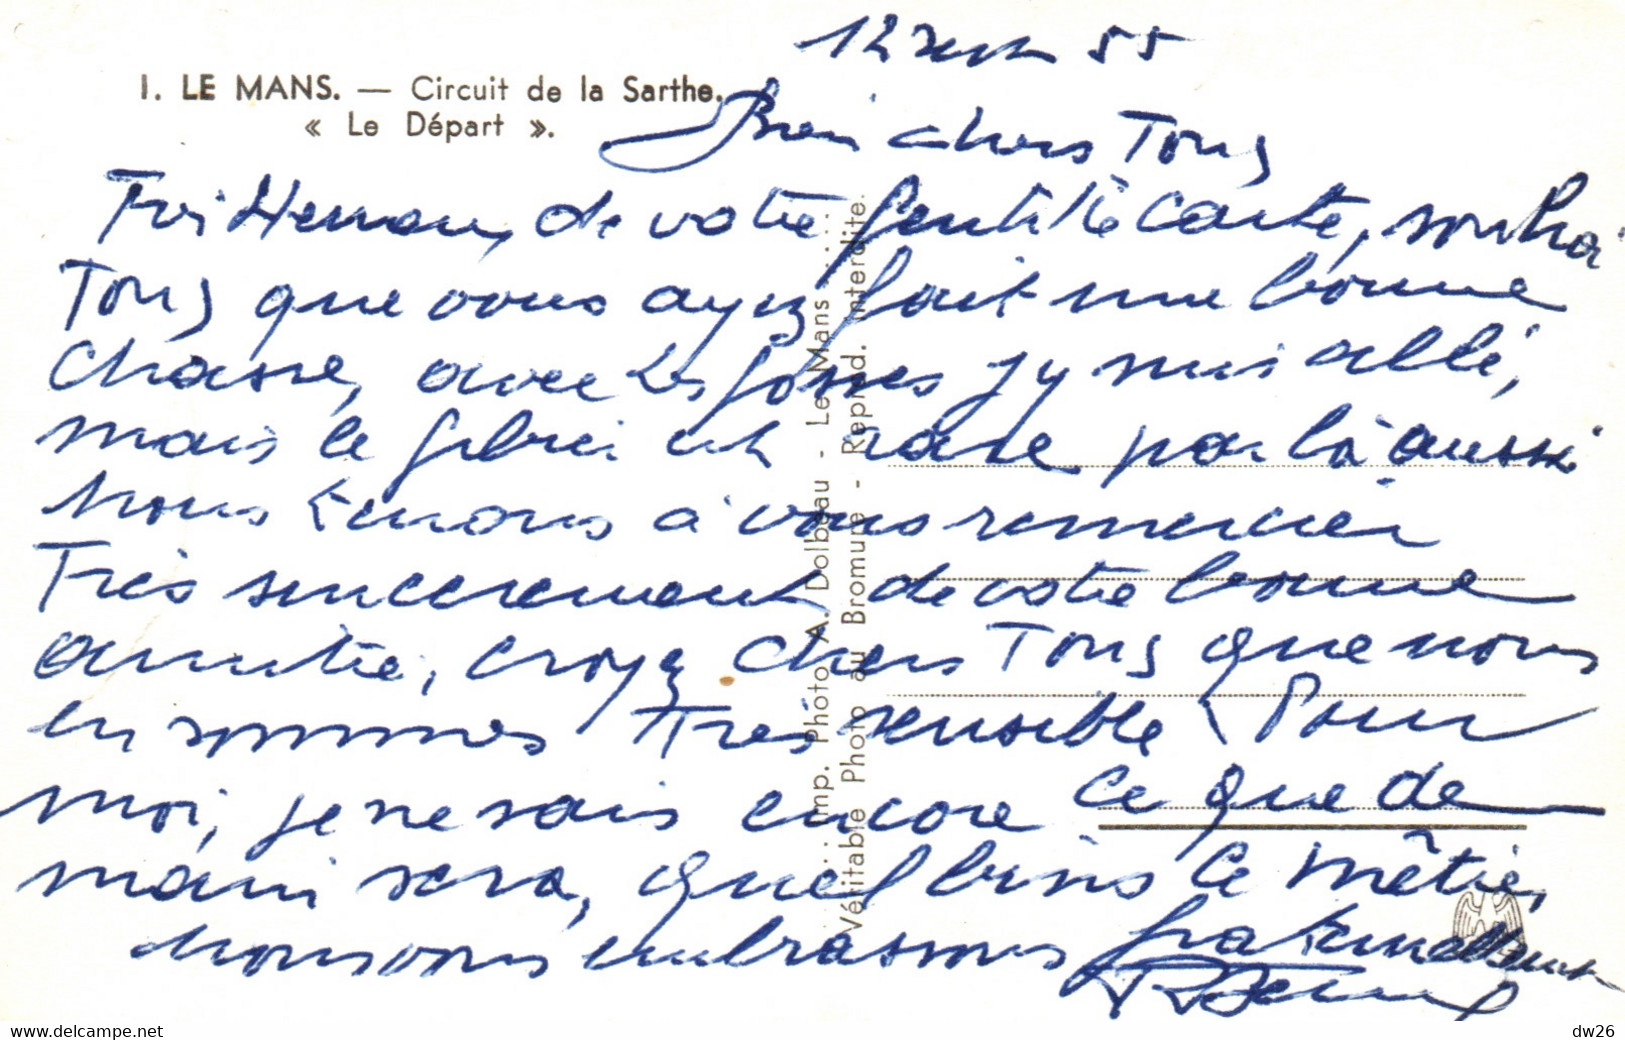 12 sept 55
I. LE MANS. — Circuit de la Sarthe.
« Le Départ ».
Bien chers Tous
Très heureux, de votre gentille carte, souhai
Tous que vous ayez fait une bonne
chasse, avec les gosses j'y suis allé,
mais le gibier est rare par là aussi
nous tenons à vous remercier
Très sincerement de votre bonne
amitié, croyez chers Tous que nous
en sommes Très sensible Pour
moi, je ne sais encore ce que de
main sera, quel bins le métier,
nous vous embrassons fraternellement
Imp. Photo A. Dolbeau - Le Mans
Véritable Photo au Bromure - Reprod. interdite.
dw26